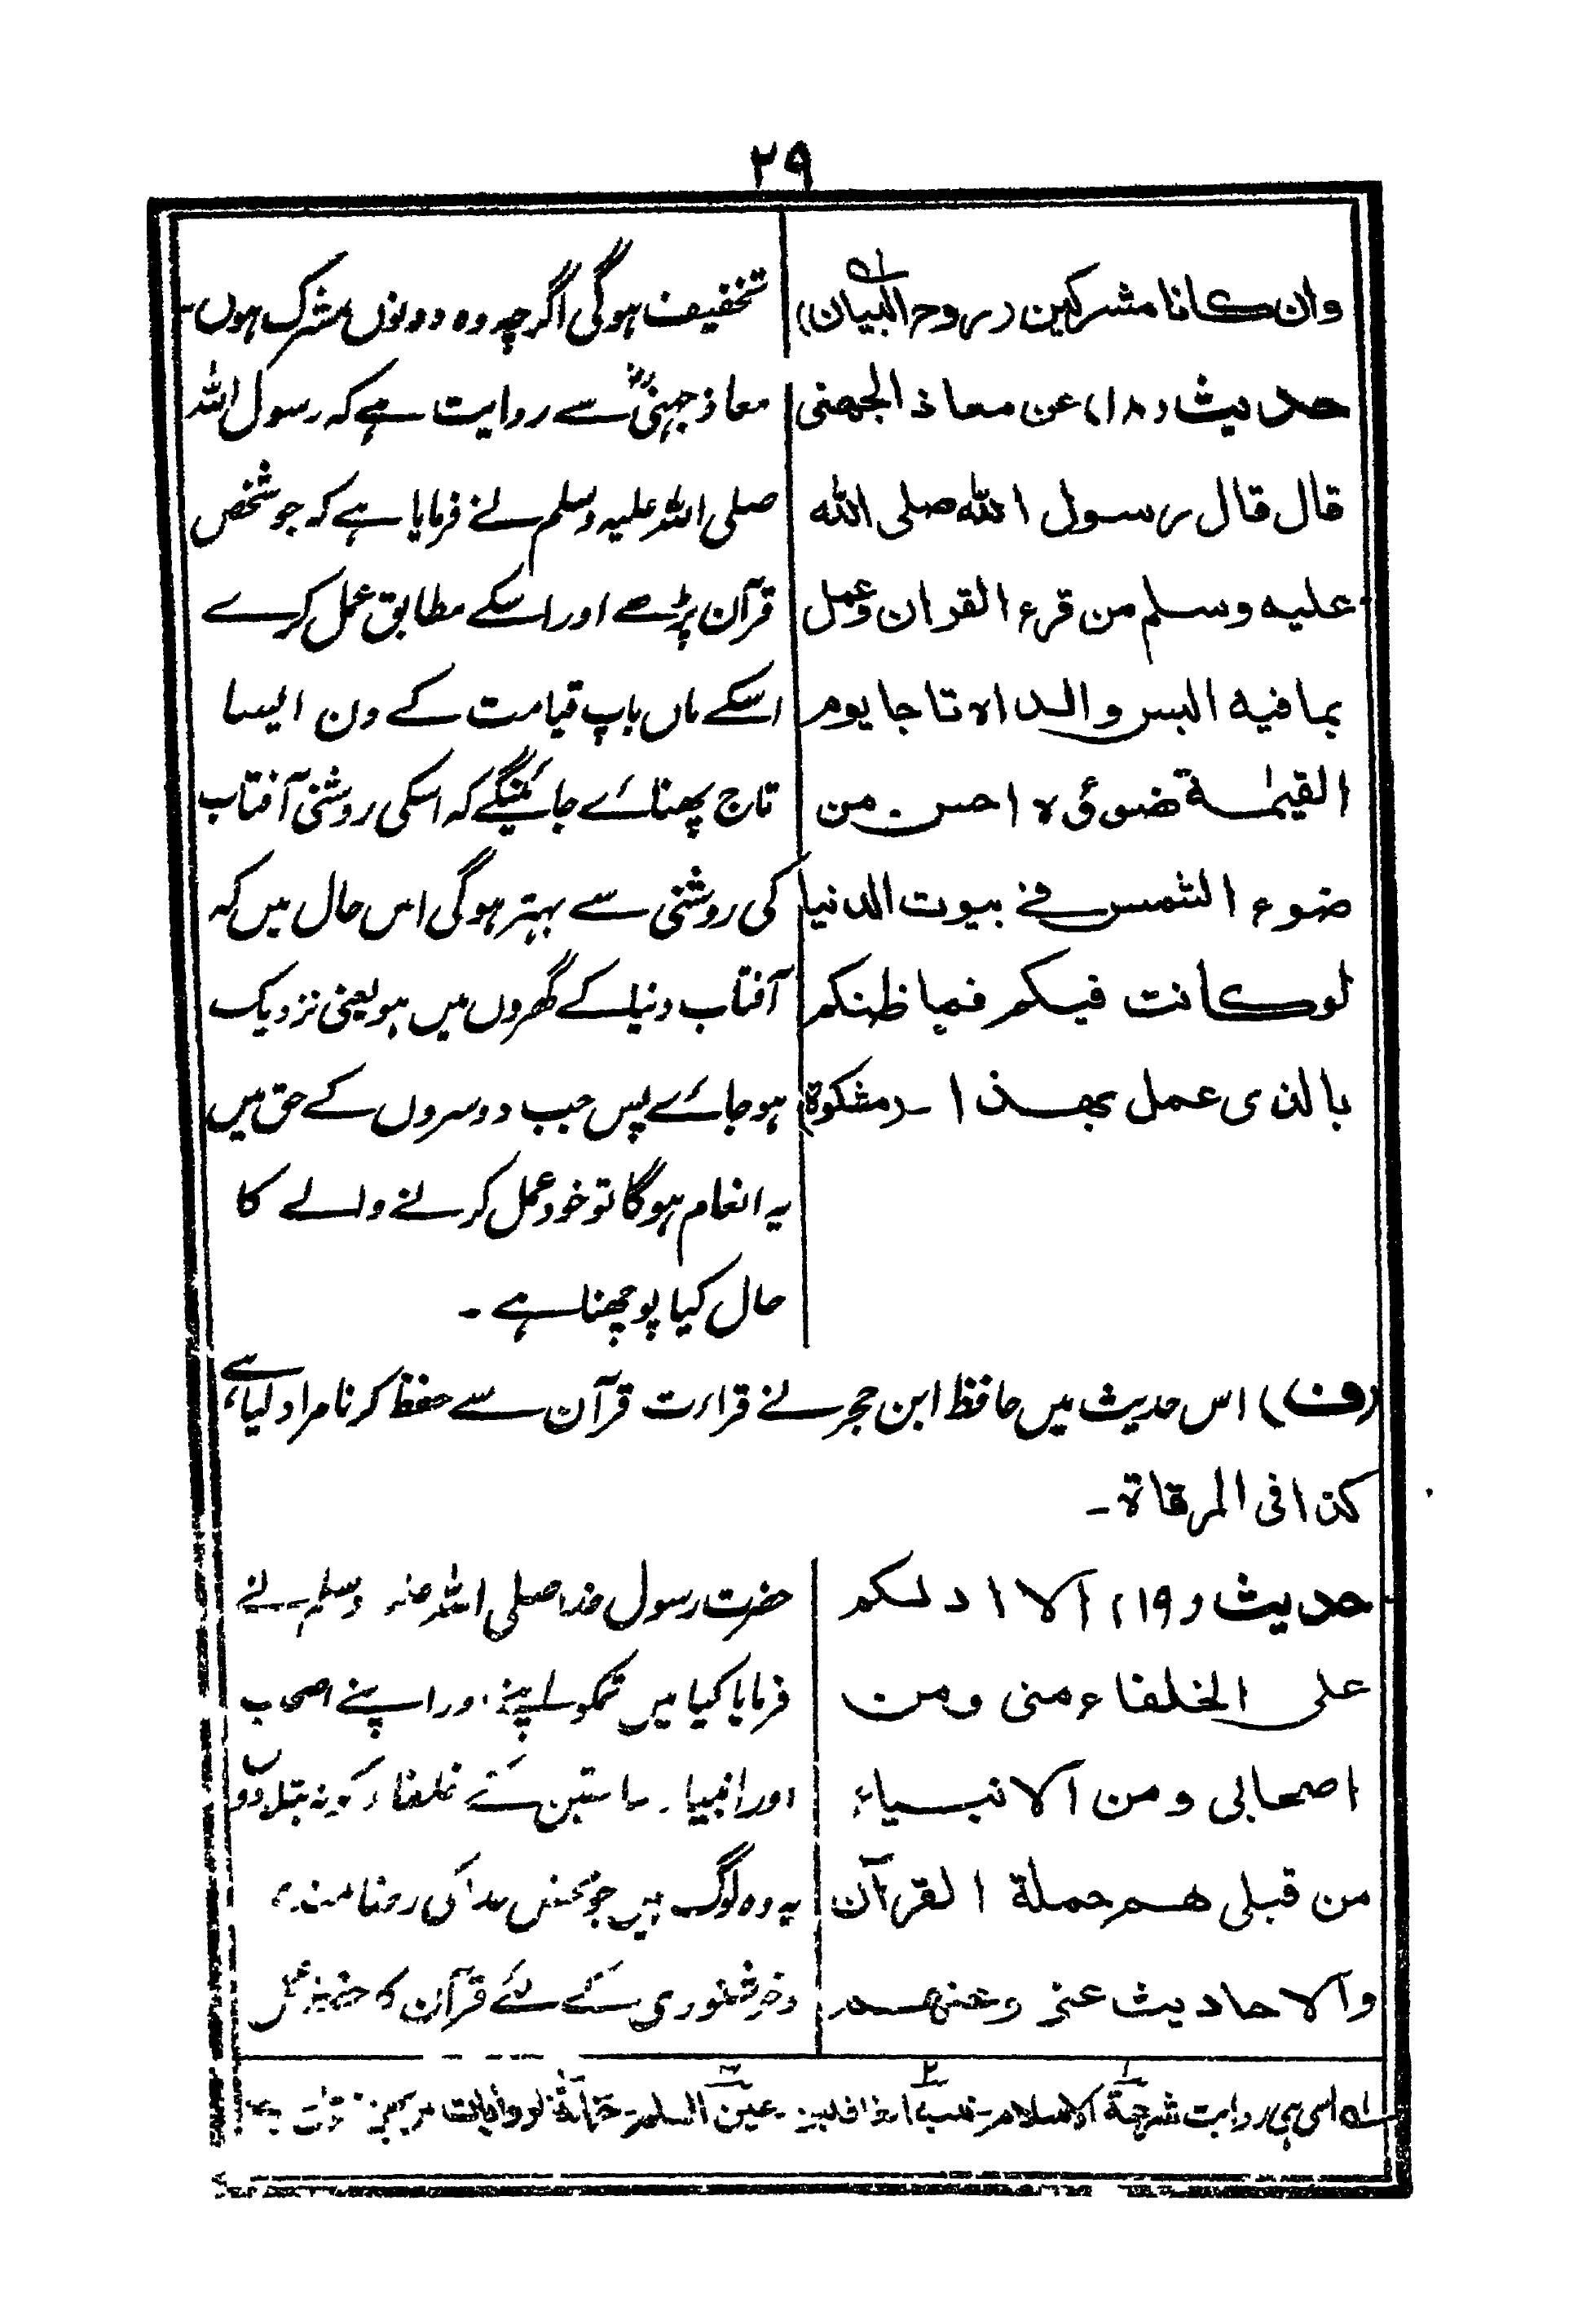 ۲۹
وان كانا مشركين (روح البیان)
حدیث (۱۸) عن معاذ الجهنی
قال قال رسول الله صلی الله
علیه وسلم من قرء القران وعمل
بما فیه البس والداه تاجا یوم
القیٰمة ضوئ ه احسن من
ضوء الشمس فے بیوت الدنیا
لوکانت فیکم فما ظنکم
بالذی عمل بهذا ۔ (مشکوة)
تخفیف ہوگی اگرچہ وہ دونوں مشرک ہوں۔
معاذ جہنیؓ سے روایت ہے کہ رسول اللہ
صلی اللہ علیہ وسلم نے فرمایا ہے کہ جو شخص
قرآن پڑھے اور اسکے مطابق عمل کرے
اسکے ماں باپ قیامت کے دن ایسا
تاج پہناۓ جائینگے کہ اسکی روشنی آفتاب
کی روشنی سے بہتر ہوگی اس حال میں کہ
آفتاب دنیا کے گھروں میں ہو یعنی نزدیک
ہو جاۓ پس جب دوسروں کے حق میں
یہ انعام ہوگا تو خود عمل کرنے والے کا
حال کیا پوچھنا ہے ۔
(ف) اس حدیث میں حافظ ابن حجر نے قراءت قرآن سے حفظ کرنا مراد لیا ہے،
کذا فی المرقاة ۔
حدیث (۱۹) الا ادلکم
علی الخلفاء منی ومن
اصحابی ومن الانبیاء
من قبلی هم حملة القرآن
والاحادیث عنی وعنهم
حضرت رسول خدا صلی اللہ علیہ وسلم نے
فرمایا کیا میں تمکو اپنے اور اپنے اصحاب
اور انبیاء سابقین کے خلفاء کو نہ بتلادوں
یہ وہ لوگ ہیں جو محض خدا کی رضامندی
وخوشنوری کے لئے قرآن کا
۱ه اسی ہی روایت شرعة الاسلام۔ عین العلم۔